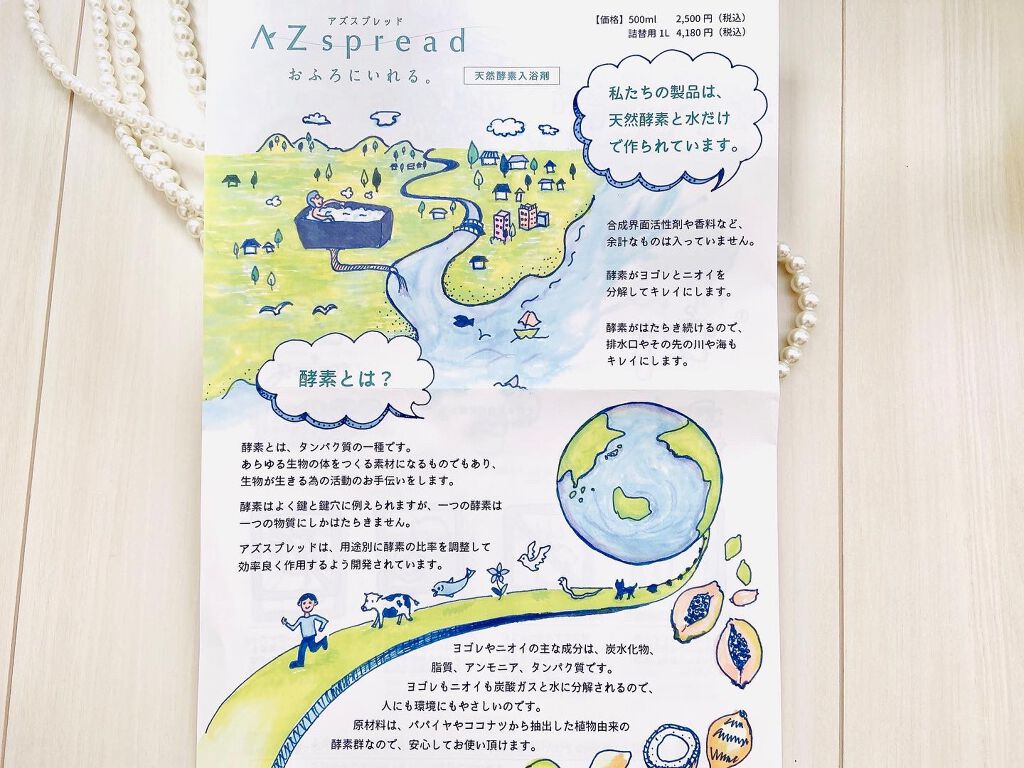 アズスプレッド
AZspread
おふろにいれる。
天然酵素入浴剤
【価格】500ml 2,500円（税込）
詰替用 1L 4,180円（税込）
私たちの製品は、
天然酵素と水だけ
で作られています。
合成界面活性剤や香料など、
余計なものは入っていません。
酵素がヨゴレとニオイを
分解してキレイにします。
酵素がはたらき続けるので、
排水口やその先の川や海も
キレイにします。
酵素とは？
酵素とは、タンパク質の一種です。
あらゆる生物の体をつくる素材になるものでもあり、
生物が生きる為の活動のお手伝いをします。
酵素はよく鍵と鍵穴に例えられますが、一つの酵素は
一つの物質にしかはたらきません。
アズスプレッドは、用途別に酵素の比率を調整して
効率良く作用するよう開発されています。
ヨゴレやニオイの主な成分は、炭水化物、
脂質、アンモニア、タンパク質です。
ヨゴレもニオイも炭酸ガスと水に分解されるので、
人にも環境にもやさしいのです。
原材料は、パパイヤやココナツから抽出した植物由来の
酵素群なので、安心してお使い頂けます。